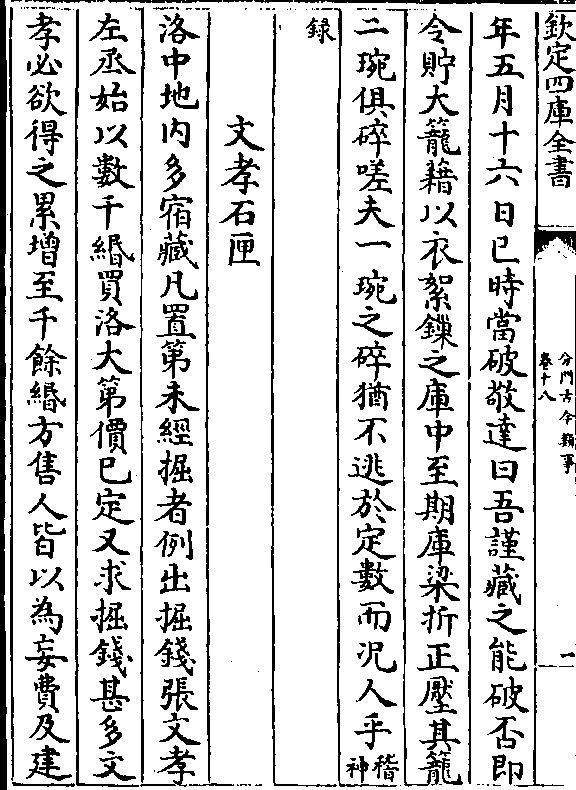 欽定四庫全書
分門古今類事
卷十八
一
年五月十六日巳時當破敬達曰吾謹藏之能破否即
令貯大籠藉以衣絮鏁之庫中至期庫梁折正壓其籠
二琬俱碎嗟夫一琬之碎猶不逃於定數而況人乎稽神
録
文孝石匣
洛中地内多宿藏凡置第未經掘者例出掘錢張文孝
左丞始以數千緡買洛大第價已定又求掘錢甚多文
孝必欲得之累增至千餘緡方售人皆以為妄費及建